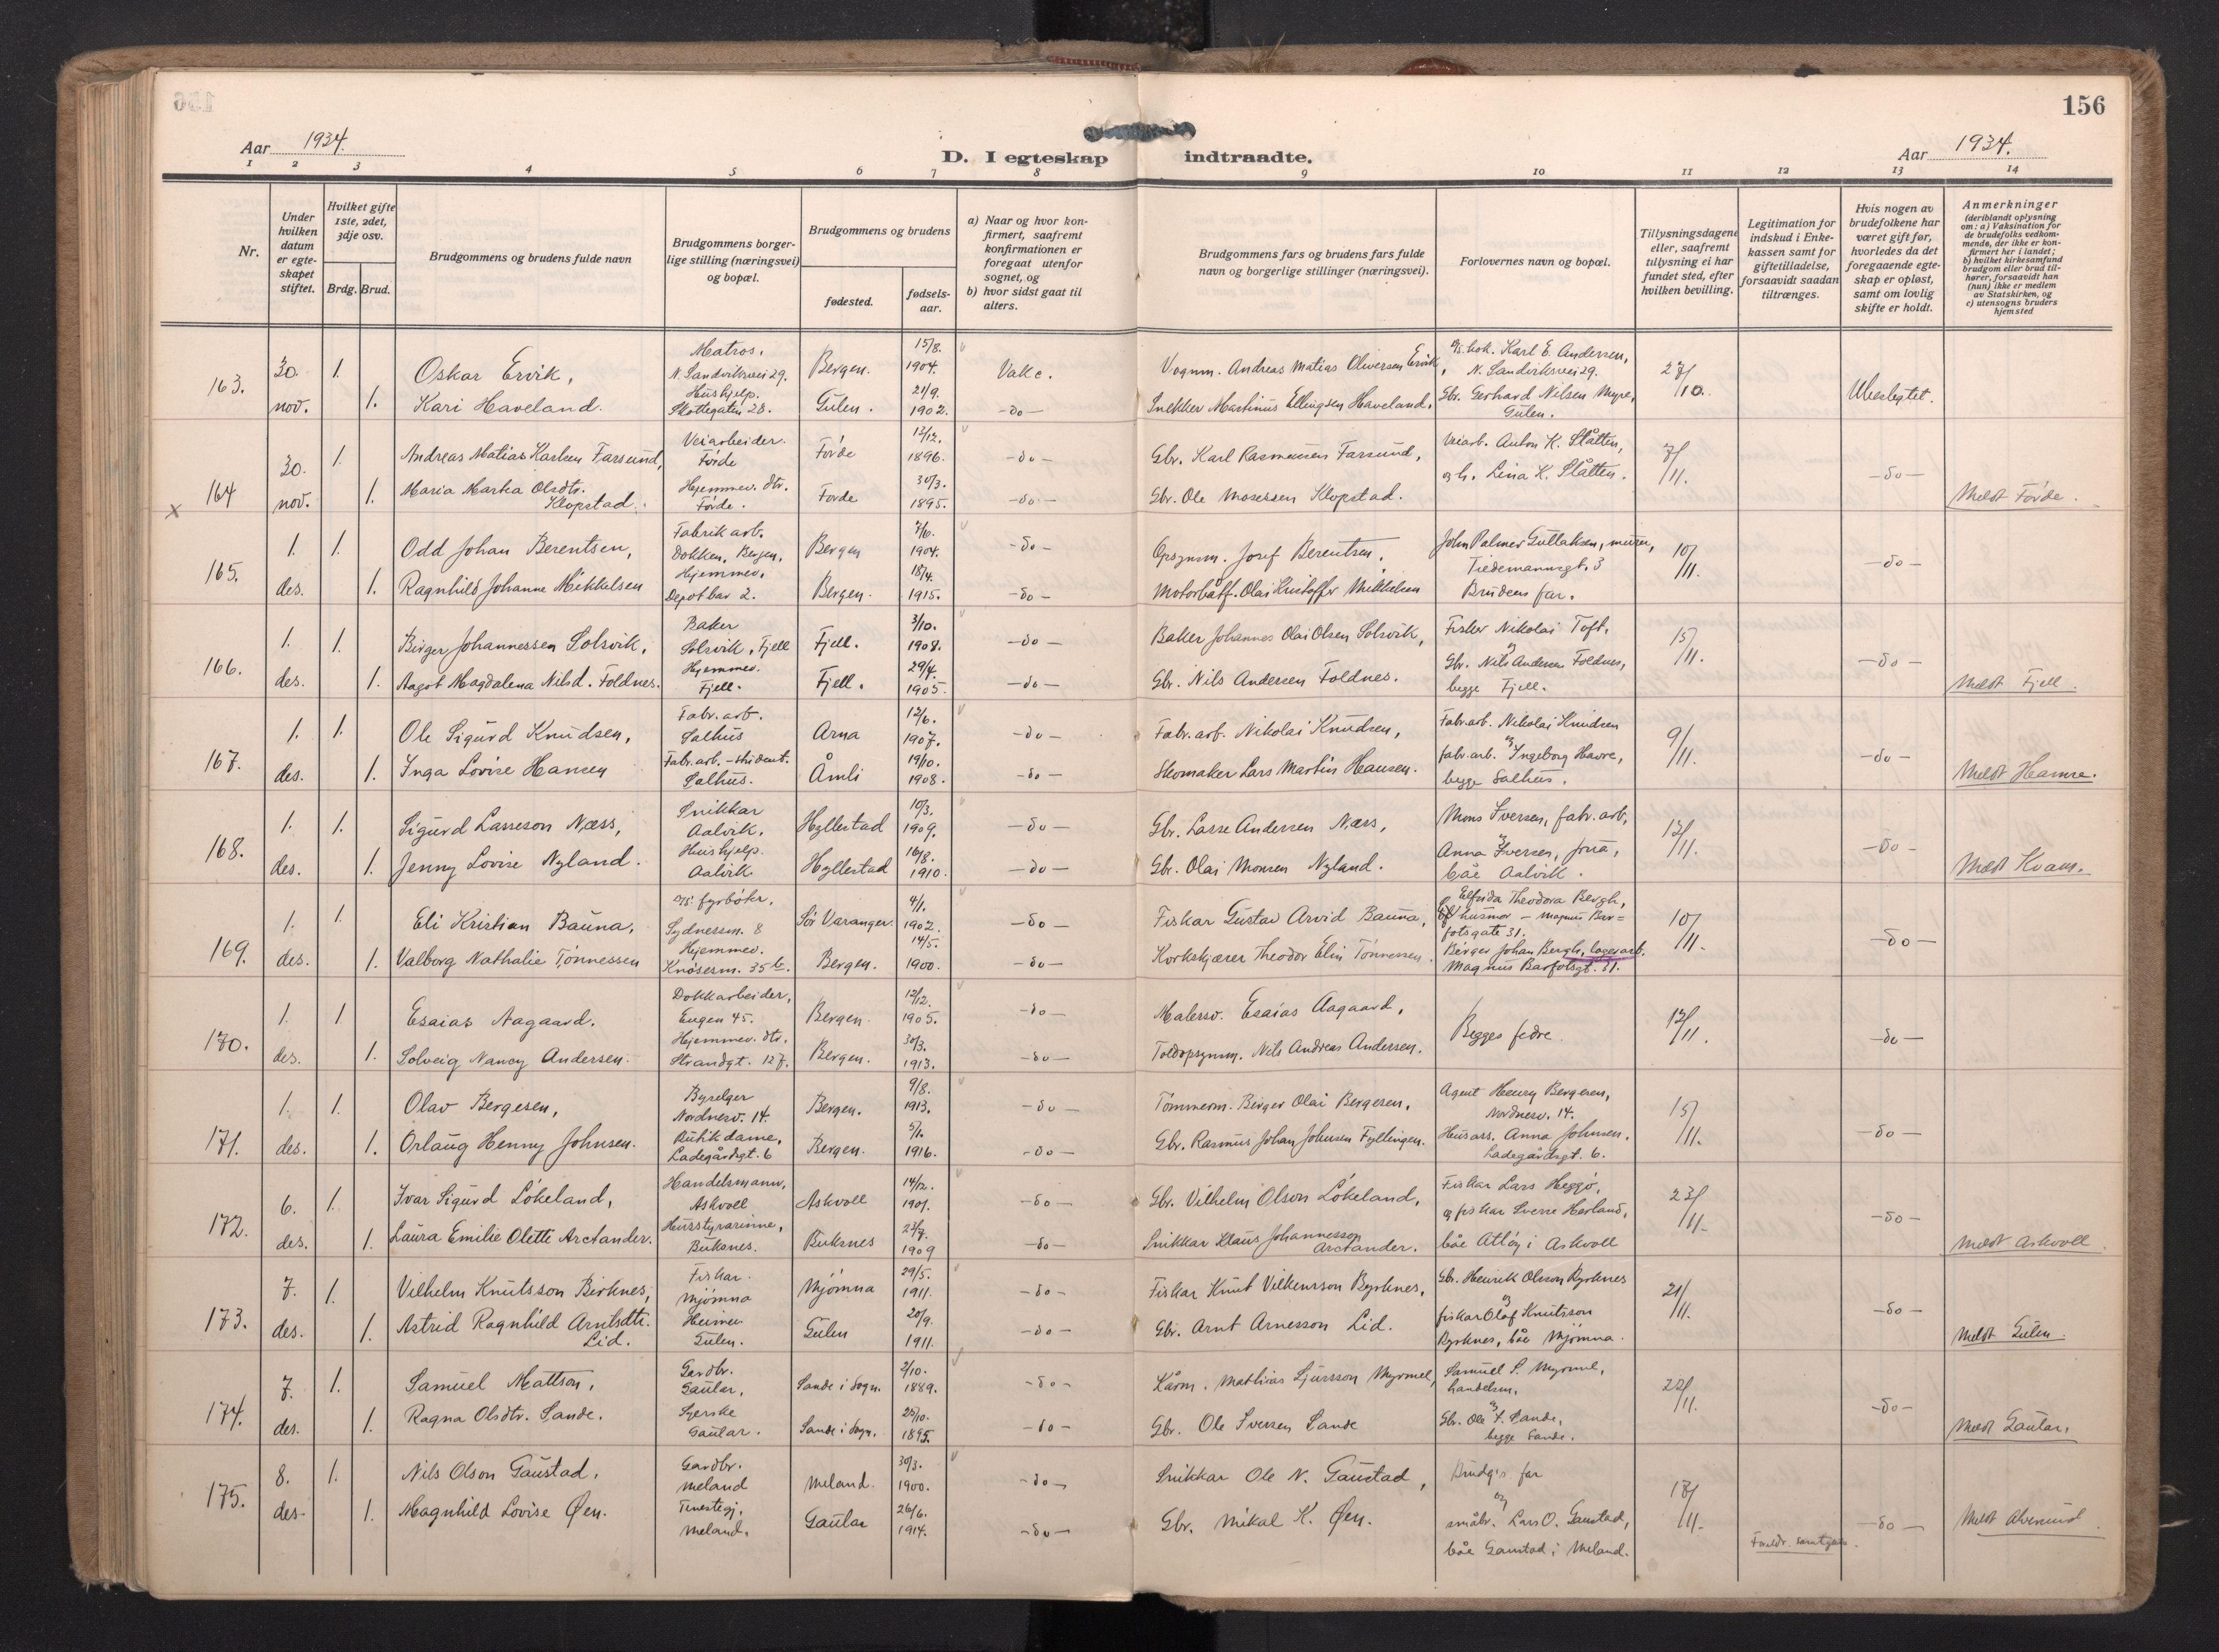 156
Aar 1934.
D. I egteskap indtraadte.
Aar 1934.
1 2 3 4 5 6 7 8 9 10 11 12 13 14
Nr.
Under hvilken datum er egteskapet stiftet.
Hvilket gifte 1ste, 2det, 3dje osv.
Brdg. Brud.
Brudgommens og brudens fulde navn
Brudgommens borgerlige stilling (næringsvei) og bopæl.
Brudgommens og brudens
fødested.
fødselsaar.
a) Naar og hvor konfirmert, saafremt konfirmationen er foregaat utenfor sognet, og
b) hvor sidst gaat til alters.
Brudgommens fars og brudens fars fulde navn og borgerlige stillinger (næringsvei).
Forlovernes navn og bopæl.
Tillysningsdagene eller, saafremt tillysning ei har fundet sted, efter hvilken bevilling.
Legitimation for indskud i Enkekassen samt for giftetilladelse, forsaavidt saadan tiltrænges.
Hvis nogen av brudefolkene har været gift før, hvorledes da det foregaaende egteskap er opløst, samt om lovlig skifte er holdt.
Anmerkninger (deriblandt oplysning om: a) Vaksination for de brudefolks vedkommende, der ikke er konfirmert her i landet; b) hvilket kirkesamfund brudgom eller brud tilhører, forsaavidt han (hun) ikke er medlem av Statskirken, og c) utensogns bruders hjemsted
163. 30. nov. 1. Oskar Ervik, Matros. N. Sandviksvei 29. Bergen. 15/8. 1904. Vake. Vognm. Andreas Matias Oliversen Ervik, Karl E. Andersen, N. Sandviksvei 29. 27/10. Ubeslegtet.
1. Kari Haveland. Hushjelp. Skottegaten 28. Gulen. 21/9. 1902. -do- Snekker Martinus Ellingsen Haveland. Gbr. Gerhard Nilsen Myre, Gulen.
x 164 30. nov. 1. Andreas Matias Karlsen Farsund, Veiarbeider. Førde Førde 13/12. 1896. -do- Gbr. Karl Rasmussen Farsund, Veiarb. Anton K. Slåtten, 7/11. -do-
1. Maria Marta Olsdtr. Klopstad. Hjemmev. dtr. Førde. Førde 30/3. 1895. -do- Gbr. Ole Mosessen Klopstad. og h. Lina K. Slåtten. Meldt Førde.
165. 1. des. 1. Odd Johan Berentsen, Fabrik arb. Dokken, Bergen, Bergen 7/6. 1904. -do- Opsynsm. Josef Berentsen, John Palmer Gullaksen, murer, Tiedemannsgt. 3 10/11. -do-
1. Ragnhild Johanne Mikkelsen Hjemmev. Depotbar 2. Bergen. 18/4. 1915. -do- Motorbåtf. Olai Kristoffer Mikkelsen Brudens far.
166. 1. des. 1. Birger Johannessen Solsvik, Baker Solsvik, Fjell Fjell. 3/10. 1908. -do- Baker Johannes Olai Olsen Solsvik, Fisker Nikolai Toft, og 15/11. -do-
1. Aagot Magdalena Nilsd. Foldnes. Hjemmev. Fjell. Fjell. 29/4. 1905. -do- Gbr. Nils Andersen Foldnes. Gbr. Nils Andersen Foldnes, begge Fjell. Meldt Fjell.
167. 1. des. 1. Ole Sigurd Knudsen, Fabr. arb. Salhus Arna 12/6. 1907. -do- Fabr. arb. Nikolai Knudsen, Fabr. arb. Nikolai Knudsen og 9/11. -do-
1. Inga Lovise Hansen Fabr. arb. Salhus. Åmli 19/10. 1908. -do- Skomaker Lars Martin Hansen. fabr. arb. Ingeborg Havre, begge Salhus. Meldt Hamre.
168. 1. des. 1. Sigurd Lasseson Næss, Snikkar Aalvik. Hyllestad 10/3. 1909. -do- Gbr. Lasse Andersen Næss, Mons Iversen, fabr. arb. og 12/11. -do-
1. Jenny Lovise Nyland. Hushjelp. Aalvik. Hyllestad 16/8. 1910. -do- Gbr. Olai Monsen Nyland. Anna Iversen, frua, båe Aalvik. Meldt Kvam.
169. 1. des. 1. Eli Kristian Bauna, fyrbøter, Sydnessm. 8 Sør Varanger. 4/1. 1902. -do- Fiskar Gustav Arvid Bauna, Elfrida Theodora Bergh, husmor - Magnus Barfotsgate 31. 10/11. -do-
1. Valborg Nathalie Tønnessen Hjemmev. Knøsesm. 35 b. Bergen. 14/5. 1900. -do- Korkskjærer Theodor Elin Tønnessen. Birger Johan Bergh, lagerarb. Magnus Barfotsgt. 31.
170. 1. des. 1. Esaias Aagaard. Dokkarbeider, Engen 45. Bergen. 12/12. 1905. -do- Malersv. Esaias Aagaard, Begges fedre 12/11. -do-
1. Solveig Nancy Andersen. Hjemmev. dtr. Strandgt. 127. Bergen. 30/3. 1913. -do- Toldopsynsm. Nils Andreas Andersen.
171. 1. des. 1. Olav Bergesen, Byselger Nordnesv. 14. Bergen. 9/8. 1913. -do- Tømmerm. Birger Olai Bergesen, Agent Henry Bergesen, Nordnesv. 14. 15/11. -do-
1. Orlaug Henny Johnsen. Butikdame, Ladegårdsgt. 6 Bergen. 5/1. 1916. -do- Gbr. Rasmus Johan Johnsen Fyllingen. Husass. Anna Johnsen, Ladegårdsgt. 6.
172. 6. des. 1. Ivar Sigurd Løkeland, Handelsmann, Askvoll Askvoll 14/12. 1901. -do- Gbr. Vilhelm Olson Løkeland, Fiskar Lars Heggø, 23/11. -do-
1. Laura Emilie Olette Arctander. Husstyrarinne, Buksnes. Buksnes 23/7. 1909 -do- Snikkar Klaus Johannesson Arctander. og fiskar Sverre Herland, båe Atløy i Askvoll Meldt Askvoll.
173. 7. des. 1. Vilhelm Knutsson Birknes, Fiskar. Mjømna Mjømna 29/5. 1911. -do- Fiskar Knut Vilhelmsson Byrknes, Gbr. Henrik Olsson Byrknes og 21/11. -do-
1. Astrid Ragnhild Arntsdtr. Lid. Heime Gulen. Gulen 20/9. 1911. -do- Gbr. Arnt Arnesson Lid. fiskar Olaf Knutsson Byrknes, båe Mjømna. Meldt Gulen.
174. 7. des. 1. Samuel Mattson, Gardbr. Gaular, Sande i Sogn. 2/10. 1889. -do- Kårm. Mathias Sjursson Myrmel, Samuel S. Myrmel, handelsm. og 22/11. -do-
1. Ragna Olsdtr. Sande. Syerske Gaular. Sande i Sogn. 25/10. 1895. -do- Gbr. Ole Iversen Sande Gbr. Ole I. Sande, begge Sande. Meldt Gaular.
175. 8. des. 1. Nils Olson Gaustad, Gardbr. Meland Meland. 30/3. 1900. -do- Snikkar Ole N. Gaustad, Brudg's far og 18/11. -do-
1. Magnhild Lovise Øen. Tenestegj. Meland. Gaular 26/6. 1914. -do- Gbr. Mikal K. Øen. småbr. Lars O. Gaustad, båe Gaustad i Meland. Meldt Alversund.